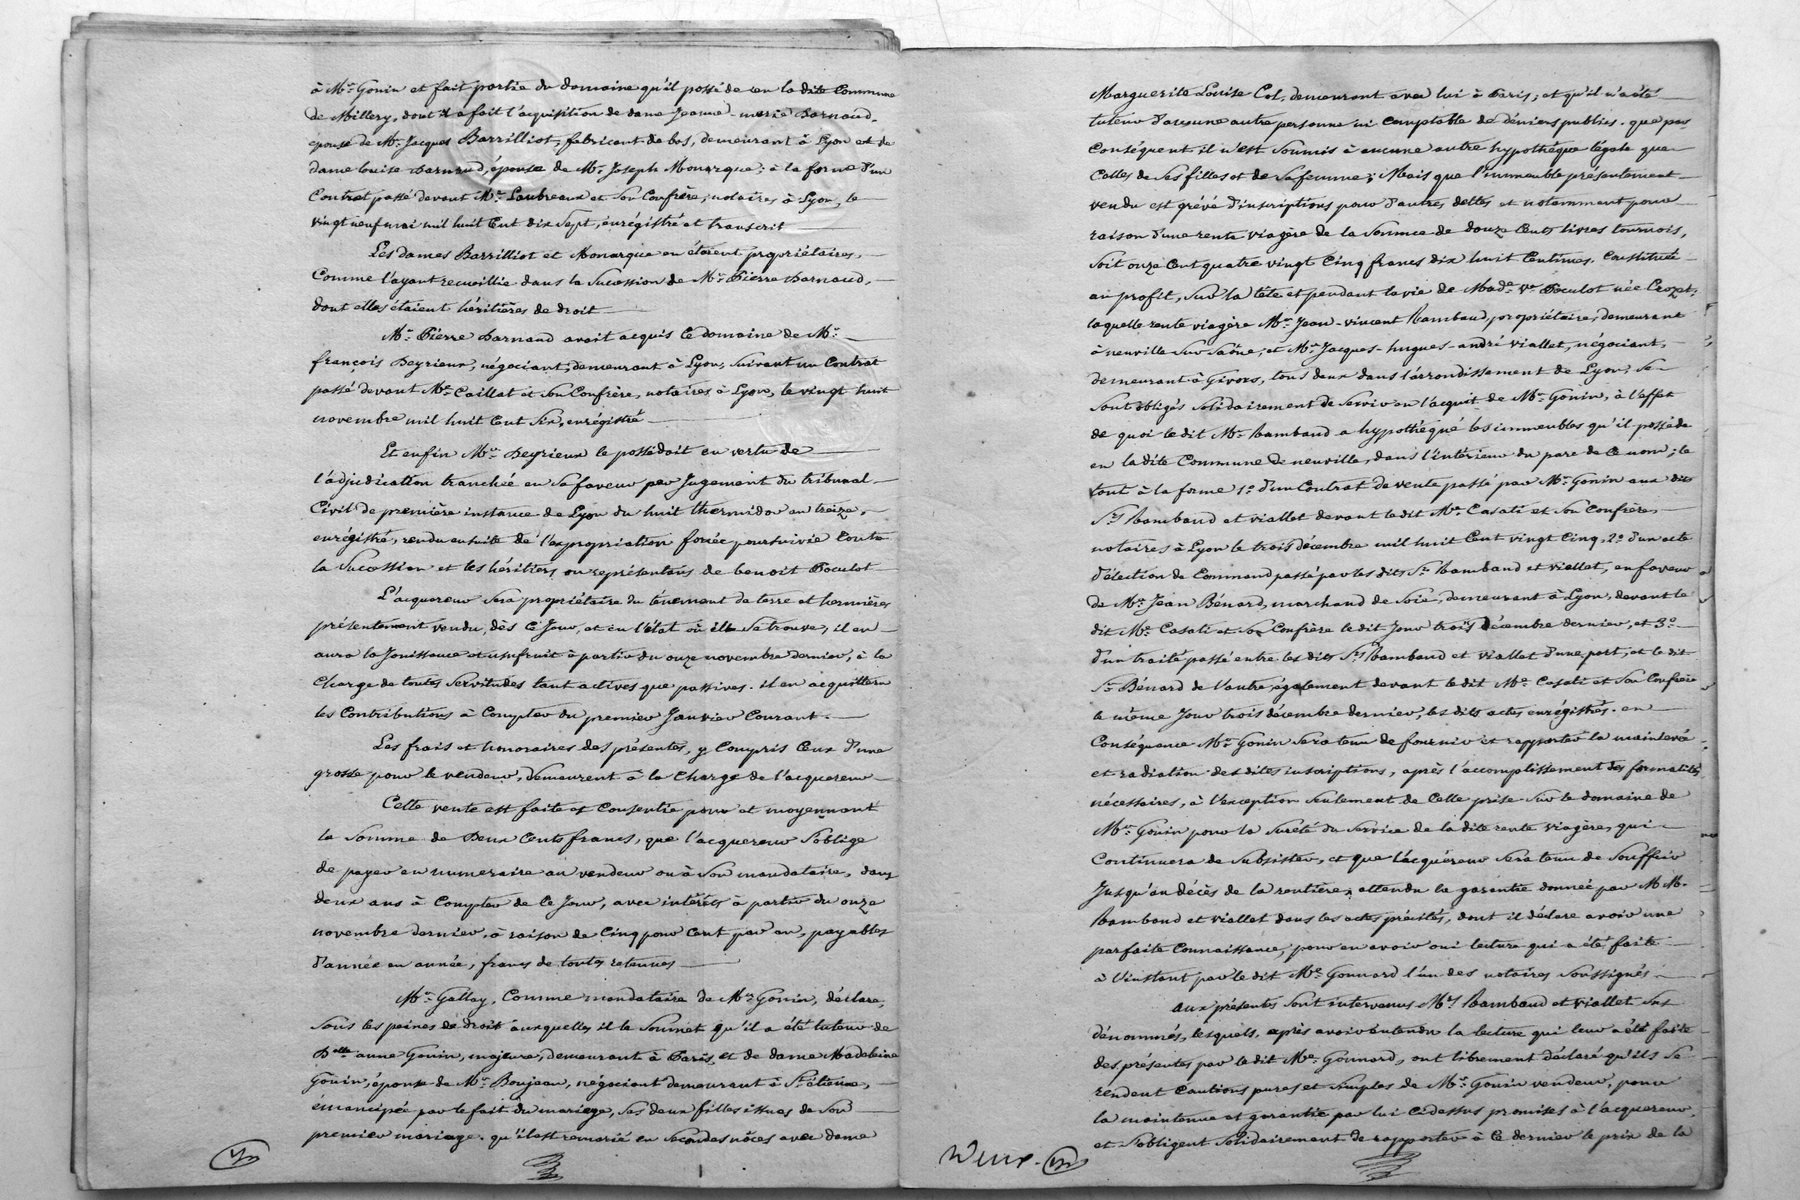 à Mr. Gonin et fait partie du domaine qu'il possède en la dite Commune
de Millery, dont il a fait l'acquisition de dame Jeanne-marie Darnaud,
épouse de Mr. Jacques Barrilliot, fabricant de bas, demeurant à Lyon et de
dame louise Darnaud, épouse de Mr. Joseph Monarque; à la forme d'un
Contrat passé devant Me. Laubreaux et Son Confrère, notaires à Lyon, le
vingt neuf mai mil huit Cent dix Sept, enrégistré et transcrit
Les dames Barrilliot et Monarque en étaient propriétaires,
Comme l'ayant recueillie dans la Sucession de Mr. Pierre Darnaud,
dont elles étaient héritières de droit
Mr. Pierre Darnaud avait acquis le domaine de Mr.
françois Deyrieux, négociant, demeurant à Lyon, Suivant un Contrat
passé devant Me. Caillat et Son Confrère, notaires à Lyon, le vingt huit
novembre mil huit Cent Six, enrégistré
Et enfin Mr. Deyrieux le possédait en vertu de
l'adjudication tranchée en Sa faveur par Jugement du tribunal
Civil de première instance de Lyon du huit thermidor an treize,
enrégistré, rendu ensuite de l'expropriation forcée poursuivie Contre
la Succession et les héritiers ou représentans de benoit Poculot
L'acquereur Sera propriétaire du tènement de terre et hermières
présentement vendu, dès Ce Jour, et en l'état où il Se trouve, il en
aura la Jouissance et usufruit à partir du onze novembre dernier, à la
Charge de toutes Servitudes tant actives que passives. il en acquittera
les Contributions à Compter du premier Janvier Courant.
Les frais et honoraires des présentes, y Compris Ceux d'une
grosse pour le vendeur, demeurent à la Charge de l'acquereur
Cette vente est faite et Consentie pour et moyennant
la Somme de Deux Cents francs, que l'acquereur S'oblige
de payer en numeraire au vendeur ou à Son mandataire, dans
deux ans à Compter de Ce Jour, avec intérêts à partir du onze
novembre dernier, à raison de Cinq pour Cent par an, payables
d'année en année, francs de toutes retenues
Mr. Gallay, Comme mandataire de Mr. Gonin, déclare,
Sous les peines de droit auxquelles il le Soumet qu'il a été tuteur de
Delle anne Gonin, majeure, demeurant à Paris, et de dame Madeleine
Gonin, épouse de Mr. Boujeau, négociant demeurant à St. étienne,
émancipée par le fait du mariage, Ses deux filles issues de Son
premier mariage. qu'il est remarié en Secondes nôces avec dame
Marguerite Louise Col, demeurant avec lui à Paris; et qu'il n'a été
tuteur d'aucune autre personne ni Comptable de déniers publics. que par
Conséquent il n'est Soumis à aucune autre hypothèque légale que
Celles de Ses filles et de Sa femme; Mais que l'immeuble présentement
vendu est grévé d'inscriptions pour d'autres dettes et notamment pour
raison d'une rente viagère de la Somme de douze Cents livres tournois,
Soit onze Cent quatre vingt Cinq francs dix huit Centimes, Constituée
au profit, Sur la tête et pendant la vie de Made. ve. Poculot née Crozet,
laquelle rente viagère Mr. Jean-vincent Rambaud, propriétaire, demeurant
à neuville Sur Saône; et Mr. Jacques-hugues-andré Viallet, négociant,
demeurant à Givors, tous deux dans l'arrondissement de Lyon; Se
Sont obligés Solidairement de Servir en l'acquit de Mr. Gonin, à l'effet
de quoi le dit Mr. Rambaud a hypothéqué les immeubles qu'il possède
en la dite Commune de neuville, dans l'intérieur du parc de Ce nom; le
tout à la forme 1o. d'un Contrat de vente passé par Mr. Gonin aux dits
Srs. Rambaud et viallet devant le dit Me. Casati et Son Confrère,
notaires à Lyon le trois décembre mil huit Cent vingt Cinq, 2o. d'un acte
d'élection de Command passé par les dits Srs. Rambaud et viallet, en faveur
de Mr. Jean Bénard, marchand de Soie, demeurant à Lyon, devant le
dit Me. Casati et Son Confrère le dit Jour trois Décembre dernier, et 3o.
d'un traité passé entre les dits Srs. Rambaud et viallet d'une part, et le dit
Sr. Bénard de l'autre, également devant le dit Me. Casati et Son Confrère
le même Jour trois décembre dernier, les dits actes enrégistrés. en
Conséquence Mr. Gonin Sera tenu de fournir et rapporter la mainlevée
et radiation des dites inscriptions, après l'accomplissement des formalités
nécessaires, à l'exception Seulement de Celle prise Sur le domaine de
Mr. Gonin pour la Sureté du Service de la dite rente viagère, qui
Continuera de Subsister, et que l'acquéreur Sera tenu de Souffrir
Jusqu'au décès de la rentière, attendu la garantie donnée par MM.
Rambaud et viallet dans les actes précités, dont il déclare avoir une
parfaite Connaissance, pour en avoir oui lecture qui a été faite
à l'instant par le dit Me. Gonnard l'un des notaires Soussignés
aux présentes Sont intervenus Mrs. Rambaud et Viallet Sus
dénommés, lesquels, après avoir entendu la lecture qui leur a été faite
des présentes par le dit Me. Gonnard, ont librement déclaré qu'ils Se
rendent Cautions pures et Simples de Mr. Gonin vendeur, pour
la maintenue et garantie par lui Cidessus promises à l'acquereur,
et S'obligent Solidairement de rapporter à Ce dernier le prix de la